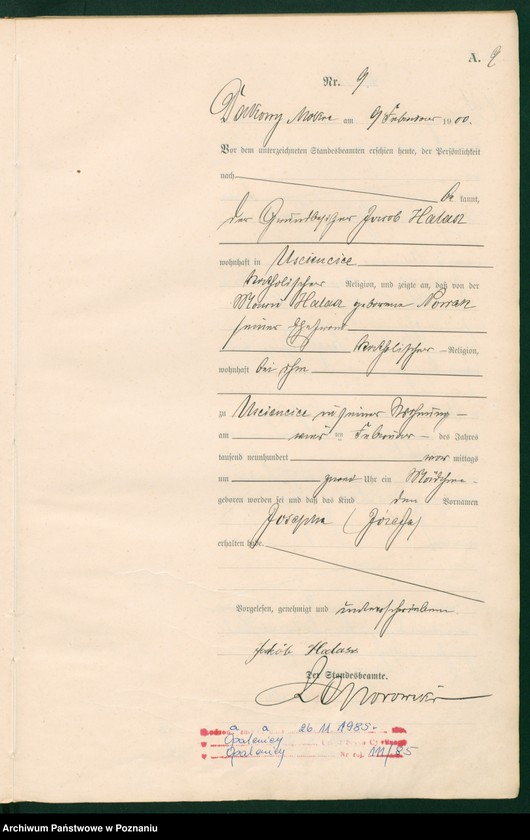 A. 9
Nr. 9
Dakowy Mokre am 9 Februar 1900.
Vor dem unterzeichneten Standesbeamten erschien heute, der Persönlichkeit
nach
be kannt,
der Grundbesitzer Jacob Halasz
wohnhaft in Usciencice
katholischer Religion, und zeigte an, daß von der
Halasz geborene Nowak
seiner Ehefrau
katholischer Religion,
wohnhaft bei ihm
zu Usciencice in seiner Wohnung
am ten Februar des Jahres
tausend neunhundert vor mittags
um Uhr ein Mädchen
geboren worden sei und daß das Kind den Vornamen
Josepha (Józefa)
erhalten habe.
Vorgelesen, genehmigt und unterschrieben.
Jakób Halasz
Der Standesbeamte.
a a 26 11 1985
Opalenicy
Opalenicy 111/85
Archiwum Państwowe w Poznaniu